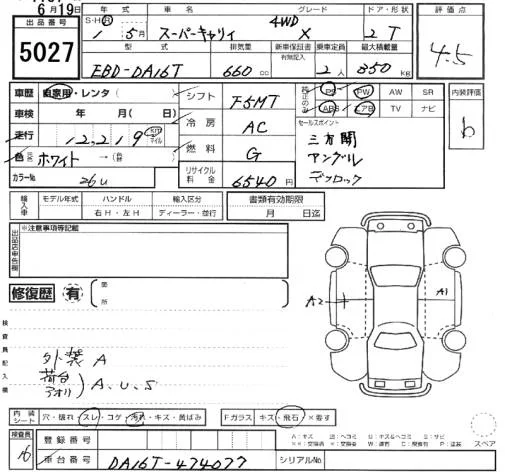 6月19日
出品番号 5027
年式 車名 グレード ドア・形状
S・H・R 1年 5月 スーパーキャリィ 4WD X 2 T
型式 排気量 新車保証書 有無記入 乗車定員 最大積載量
EBD-DA16T 660cc 2人 350kg
評価点
4.5
車歴 自家用・レンタ・( )
シフト F5MT
純正のみ PS PW AW SR
ABS エアB TV ナビ
内装評価
b
車検 年 月( )
冷房 AC
セールスポイント
三方開
アングル
デフロック
走行 12,219 Km マイル
燃料 G
色 ホワイト →( )
リサイクル料金 6540円
カラーNo. 26U
輸入車 モデル年式 ハンドル 右H・左H 輸入区分 ディーラー・並行
書類有効期限 月 日迄
※注意事項等記載
修復歴 有 箇所
検査員記入欄
外装 A
荷台 アオリ ) A、U、S
A2 A1
内装シート 穴・破れ・スレ・コゲ・汚れ・キズ・黄ばみ
Fガラス キズ・飛石・×要す
スペア
検査員 16
登録番号
車台番号 DA16T-474077 シリアルNo.